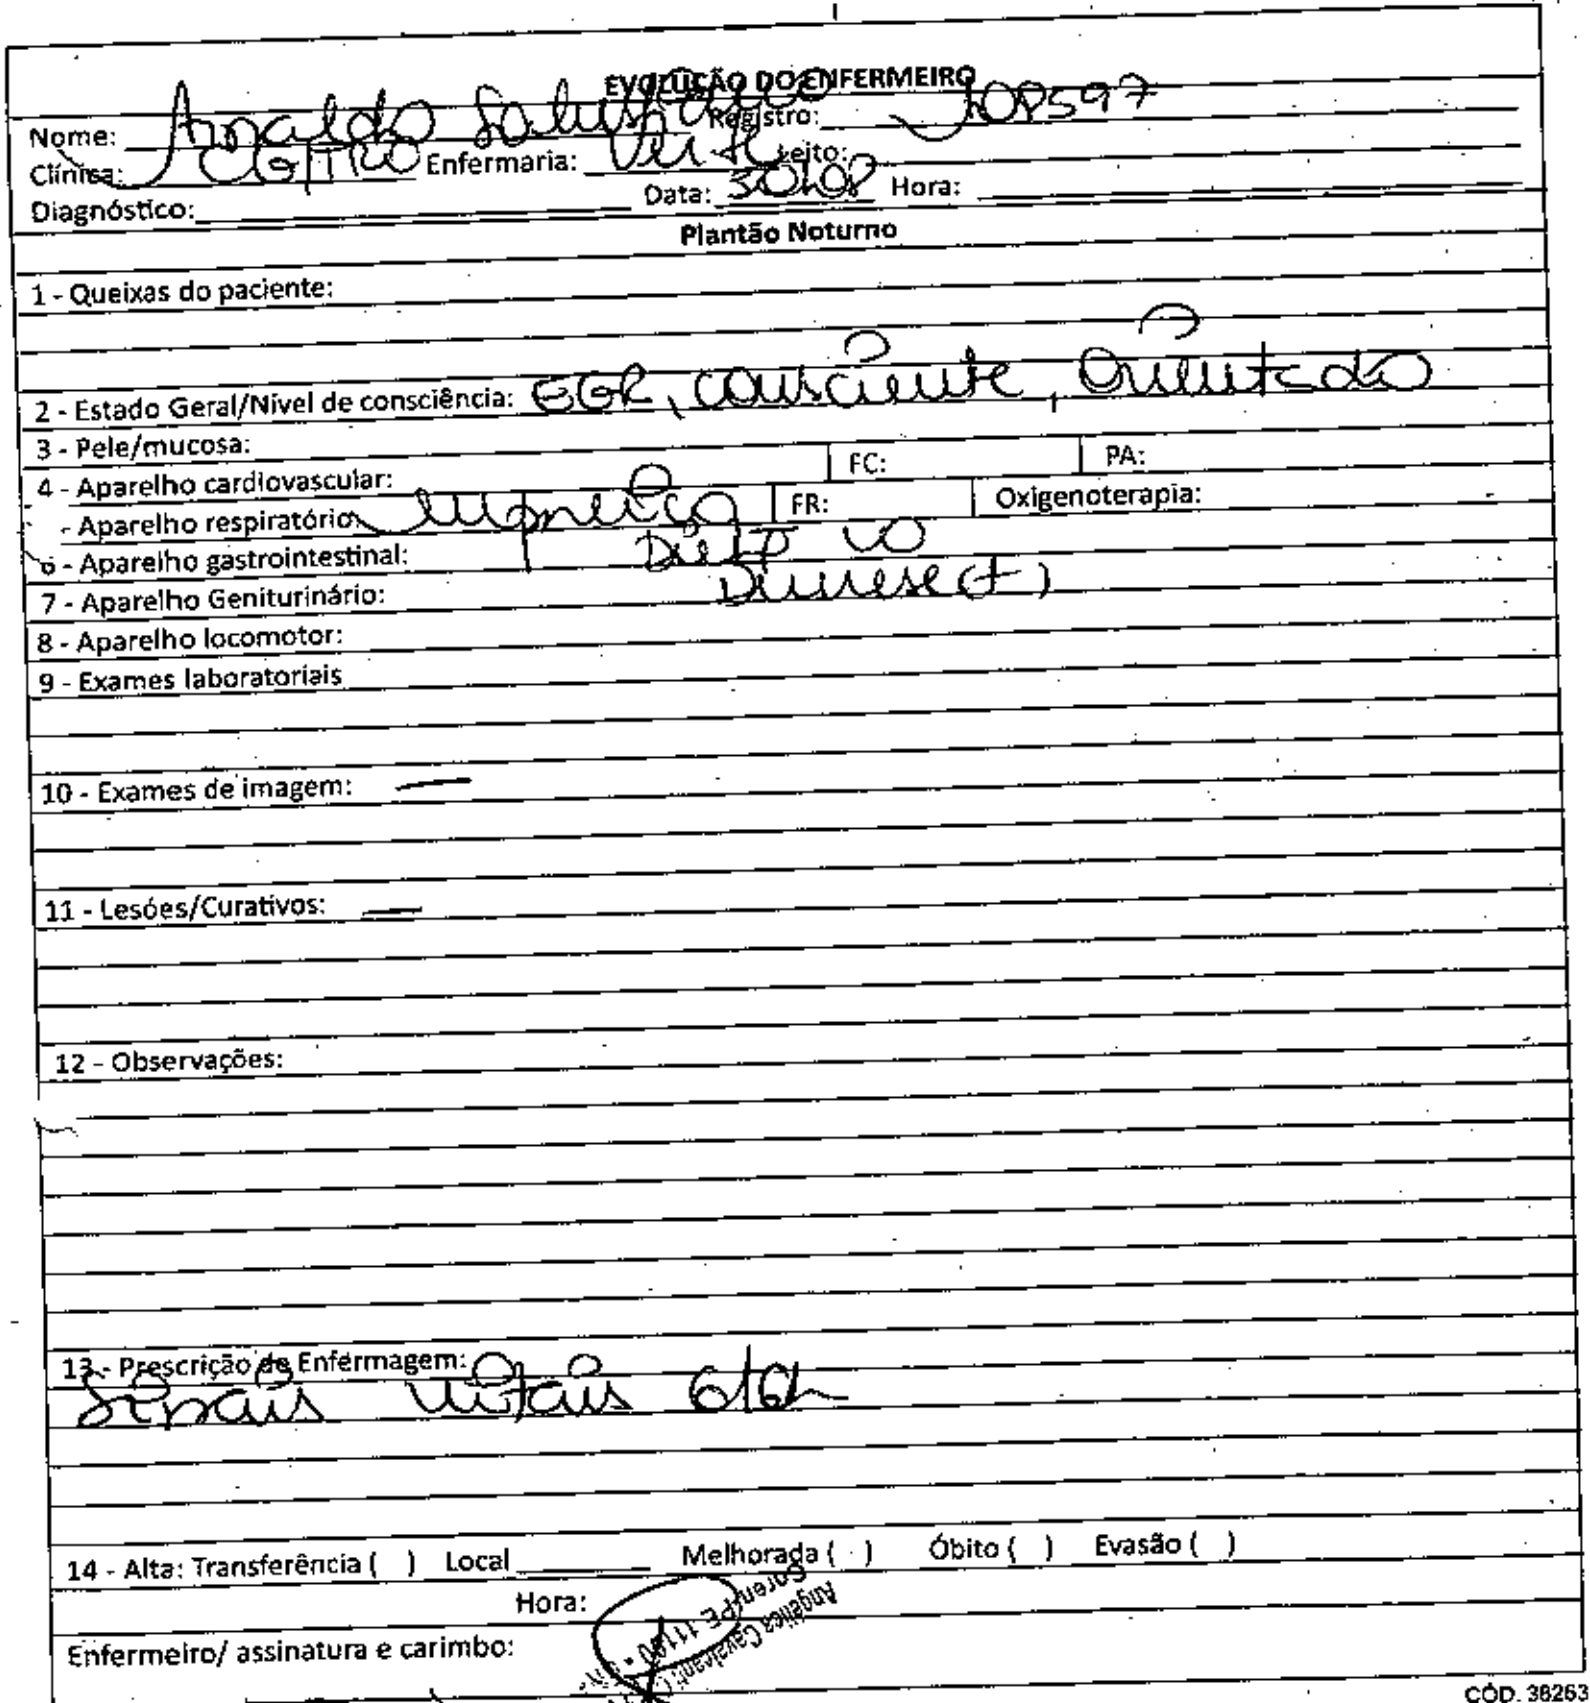 EVOLUÇÃO DO ENFERMEIRO
Nome: Arnaldo Salustiano Registro: 108597
Clínica: CG/TRO Enfermaria: Leito:
Diagnóstico: Data: 30/08 Hora:
Plantão Noturno
1 - Queixas do paciente:
2 - Estado Geral/Nível de consciência: EGR, consciente, Orientado
3 - Pele/mucosa:
4 - Aparelho cardiovascular: FC: PA:
- Aparelho respiratório eupneico FR: Oxigenoterapia:
6 - Aparelho gastrointestinal: Dieta VO
7 - Aparelho Geniturinário: Diurese (+)
8 - Aparelho locomotor:
9 - Exames laboratoriais
10 - Exames de imagem: —
11 - Lesões/Curativos: —
12 - Observações:
13 - Prescrição de Enfermagem:
Sinais vitais 6/6h
14 - Alta: Transferência ( ) Local ______ Melhorada ( ) Óbito ( ) Evasão ( )
Hora:
Enfermeiro/ assinatura e carimbo:
Angélica Cavalcanti
Coren/PE
CÓD. 38263